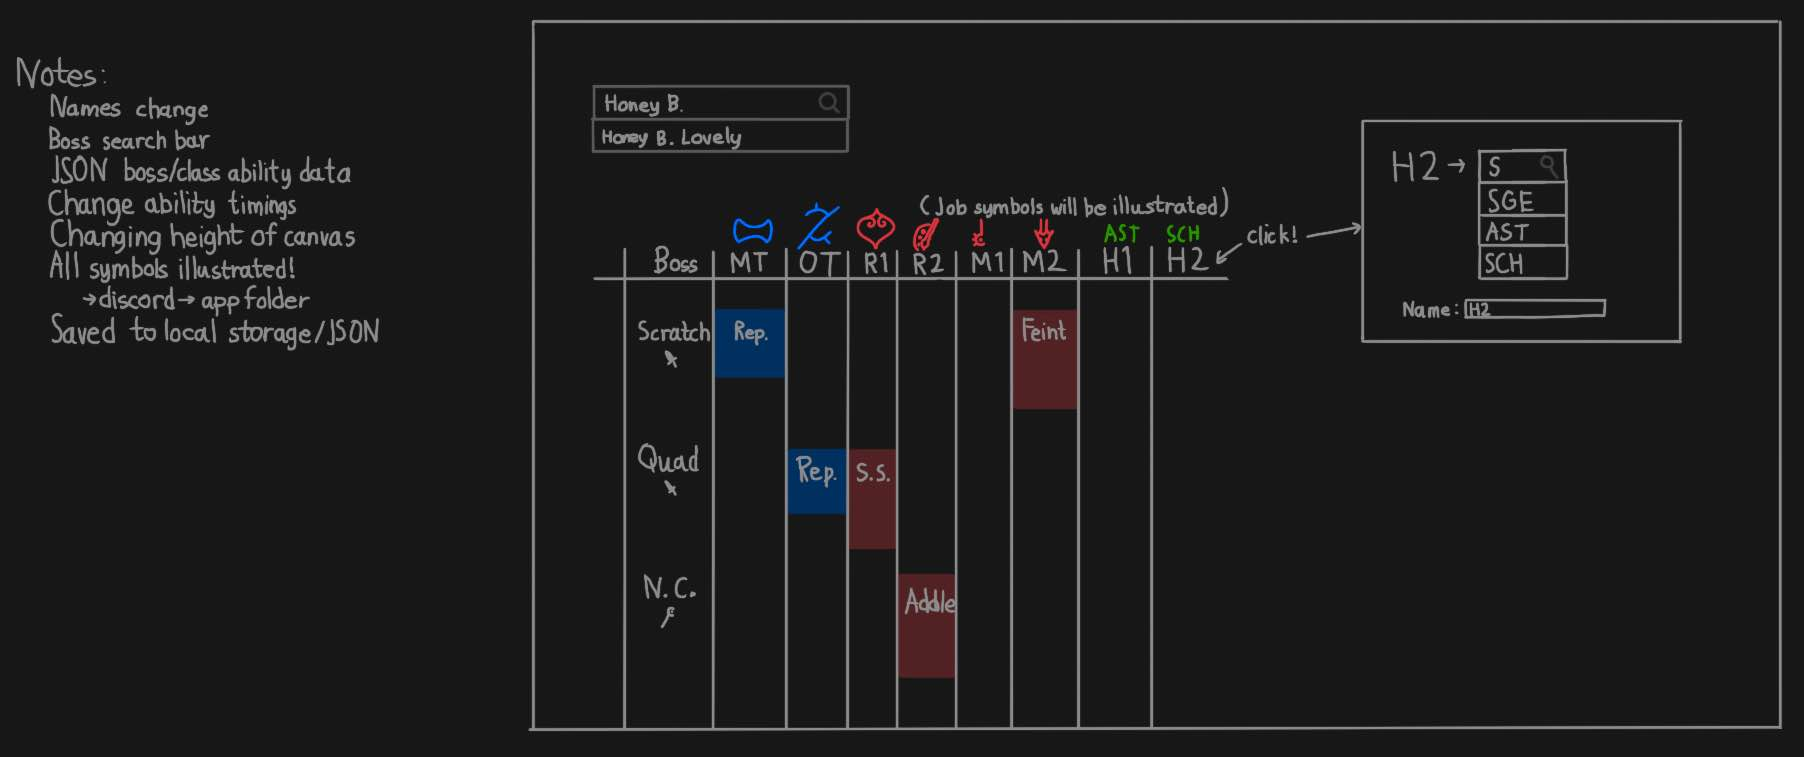 Notes:
Names change
Boss search bar
JSON boss/class ability data
Change ability timings
Changing height of canvas
All symbols illustrated!
→discord→app folder
Saved to local storage/JSON
Honey B.
Honey B. Lovely
(Job symbols will be illustrated)
AST SCH
Boss MT OT R1 R2 M1 M2 H1 H2
click!
Scratch Rep. Feint
Quad Rep. S.S.
N.C. Addle
H2→ S
SGE
AST
SCH
Name: H2